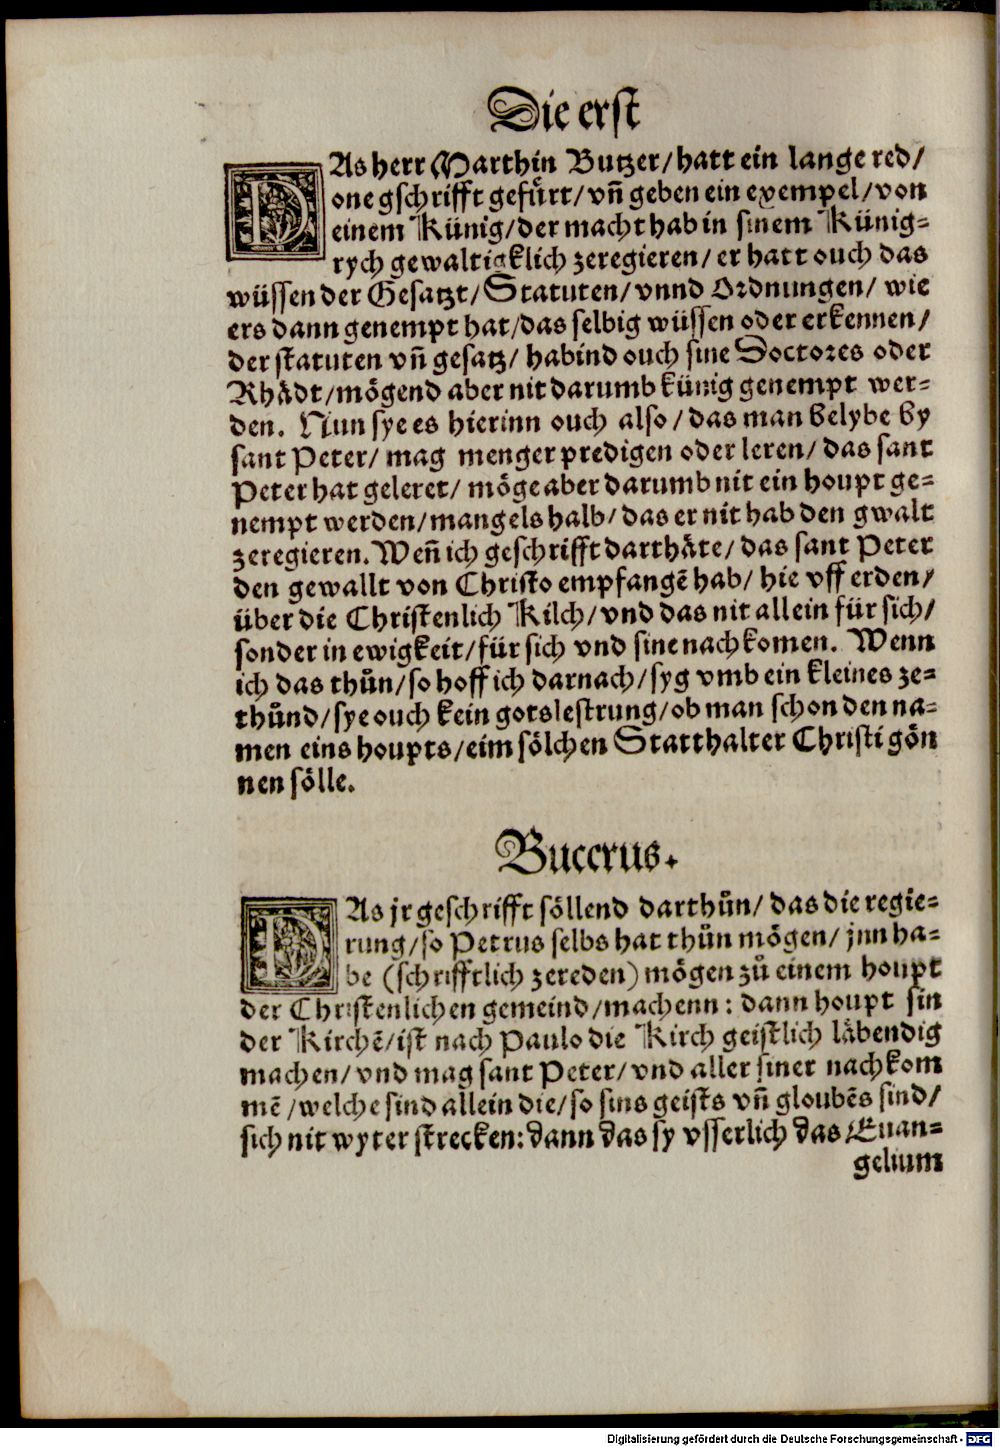 Die erst
DAs herr Marthin Butzer/hatt ein lange red/
one gschrifft gefürt/vñ geben ein exempel/von
einem Künig/der macht hab in sinem Künig-
rych gewaltigklich zeregieren/er hatt ouch das
wüssen der Gesatzt/Statuten/vnnd Ordnungen/ wie
ers dann genempt hat/das selbig wüssen oder erkennen/
der statuten vñ gesatz/ habind ouch sine Doctores oder
Rhädt/mögend aber nit darumb künig genempt wer-
den. Nun sye es hierinn ouch also/das man belybe by
sant Peter/ mag menger predigen oder leren/ das sant
Peter hat geleret/ möge aber darumb nit ein houpt ge-
nempt werden/mangels halb/das er nit hab den gwalt
zeregieren. Weñ ich geschrifft darthäte/das sant Peter
den gewallt von Christo empfangẽ hab/ hie vff erden/
über die Christenlich Kilch/vnd das nit allein für sich/
sonder in ewigkeit/für sich vnd sine nachkomen. Wenn
ich das thůn/so hoff ich darnach/syg vmb ein kleines ze-
thůnd/sye ouch kein gotslestrung/ob man schon den na-
men eins houpts/eim sölchen Statthalter Christi gön
nen sölle.
Bucerus.
DAs jr geschrifft söllend darthůn/das die regie-
rung/so Petrus selbs hat thůn mögen/ jnn ha-
be (schrifftlich zereden) mögen zů einem houpt
der Christenlichen gemeind/machenn: dann houpt sin
der Kirchẽ/ist nach Paulo die Kirch geistlich läbendig
machen/vnd mag sant Peter/vnd aller siner nachkom
mẽ/welche sind allein die/so sins geists vñ gloubẽs sind/
sich nit wyter strecken: dann das sy vsserlich das Euan-
gelium
Digitalisierung gefördert durch die Deutsche Forschungsgemeinschaft - DFG